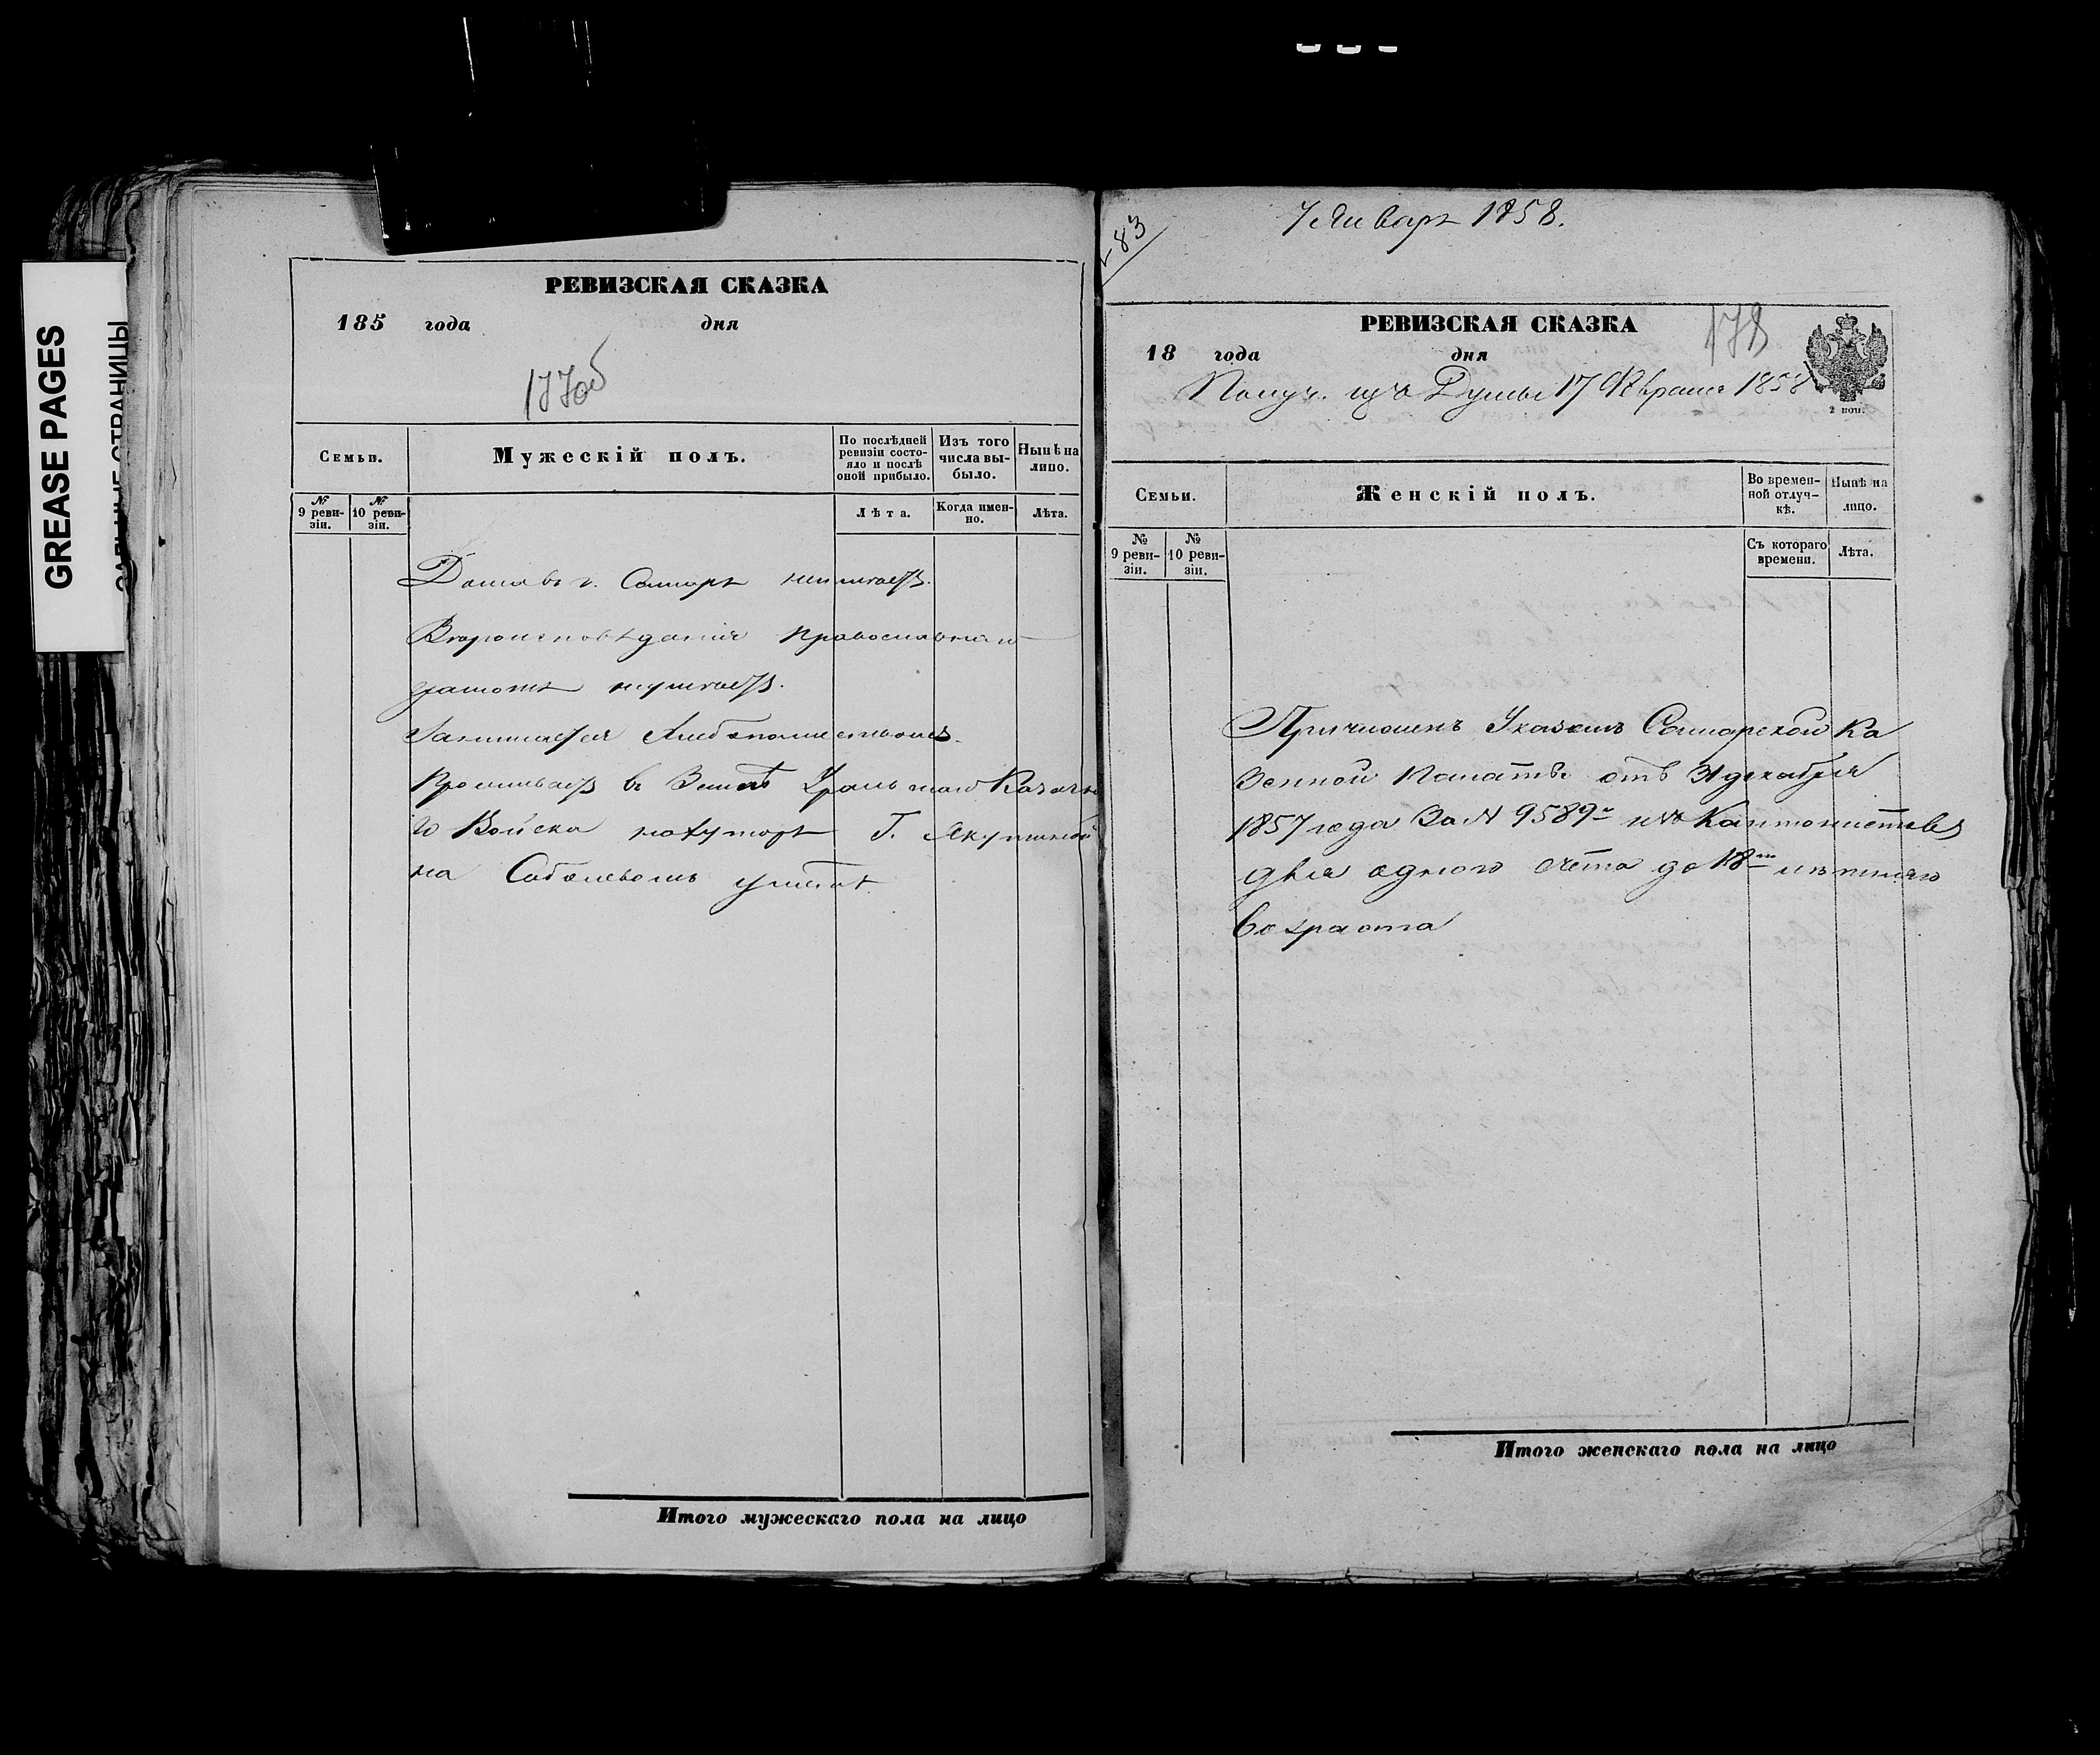 GREASE PAGES
РЕВИЗСКАЯ СКАЗКА
185 года дня
177об
Семьи.
Мужескій полъ.
По послѣдней ревизіи состояло и послѣ оной прибыло.
Изъ того числа выбыло.
Нынѣ на лицо.
№ 9 ревизіи.
№ 10 ревизіи.
Лѣта.
Когда именно.
Лѣта.
Дома въ г. Самарѣ неимѣетъ.
Вероисповѣданія православнаго
грамотѣ неумѣетъ.
Занимается Хлебопашествомъ.
Проживаетъ въ Земле Уральскаго Казачья
го Войска на хуторѣ Г. Акутиной
на Соболевомъ умете.
Итого мужескаго пола на лицо
83
7 Январь 1858.
РЕВИЗСКАЯ СКАЗКА
178
18 года дня
2 коп.
Получ. изъ Думы 17 Февраля 1858
Семьи.
Женскій полъ.
Во временной отлучкѣ.
Нынѣ на лицо.
№ 9 ревизіи.
№ 10 ревизіи.
Съ котораго времени.
Лѣта.
Причисленъ Указомъ Самарской Ка
зенной Палаты отъ 31 декабря
1857 года За № 9589 изъ Кантонистовъ
для одного счета до 18 лѣтняго
возраста
Итого женскаго пола на лицо